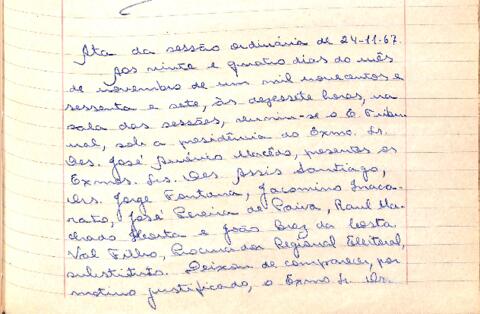 Ata da sessão ordinária de 24-11-67.
Aos vinte e quatro dias do mês
de novembro de um mil novecentos e
sessenta e sete, às dezessete horas, na
sala das sessões, reuniu-se o E. Tribu-
nal, sob a presidência do Exmo. Sr.
Des. José Américo Macêdo, presentes os
Exmos. Srs. Des. Assis Santiago,
Drs. Jorge Fontana, Jacomino Inaca-
rato, José Pereira de Paiva, Raul Ma-
chado Horta e João Braz da Costa
Val Filho, Procurador Regional Eleitoral,
substituto. Deixou de comparecer, por
motivo justificado, o Exmo Sr. Dr.